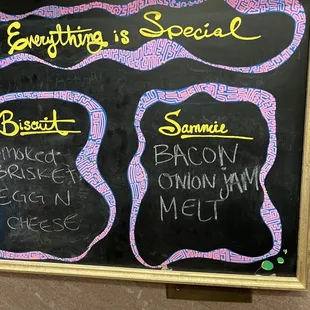 Everything is Special
Biscuit
smoked
BRISKET
EGG N
CHEESE
Sammie
BACON
ONION JAM
MELT